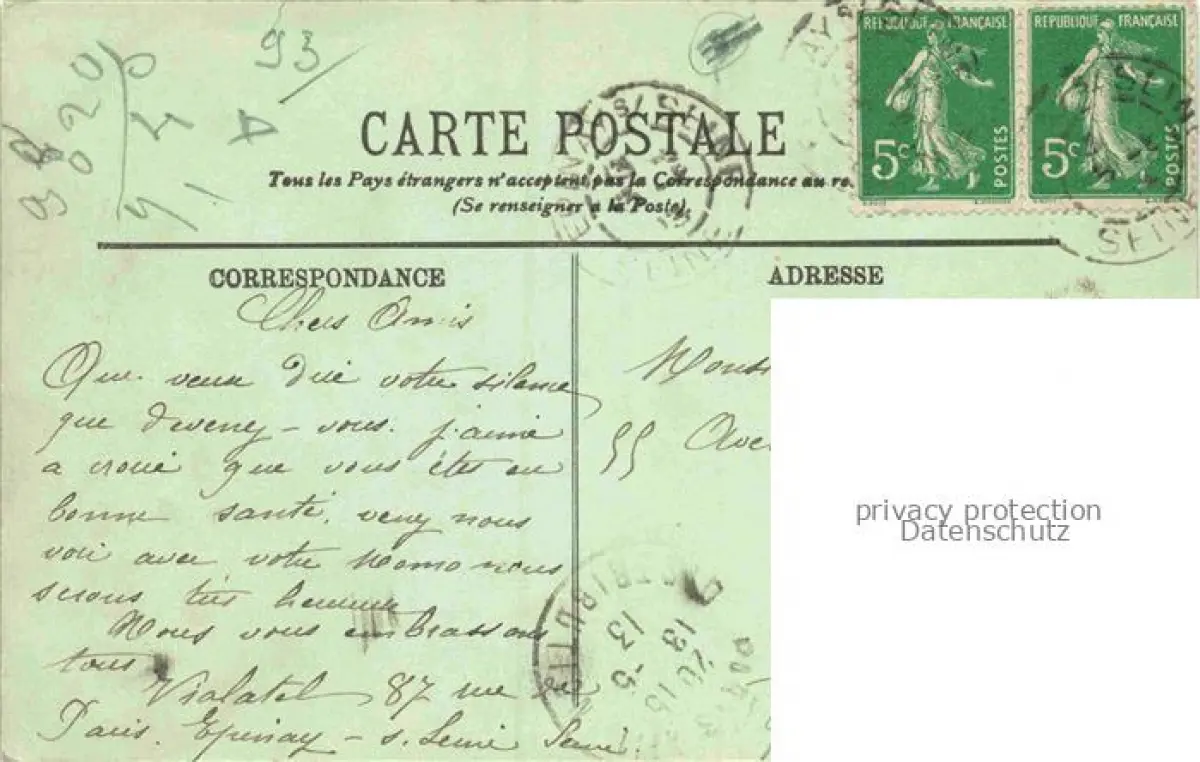 93
REPUBLIQUE FRANÇAISE
5c
POSTES
REPUBLIQUE FRANÇAISE
5c
POSTES
CARTE POSTALE
Tous les Pays étrangers n'acceptent pas la Correspondance au re
(Se renseigner à la Poste)
CORRESPONDANCE
Chers Amis
Que veux dire votre silence
que devenez-vous. j'aime
a croire que vous êtes en
bonne santé, venez nous
voir avec votre Momo nous
serons très heureux
Nous vous embrassons
tous
Violatel 87 rue de
Paris. Epinay-s. Seine Seine.
ADRESSE
Monsi
55 Ave
privacy protection
Datenschutz